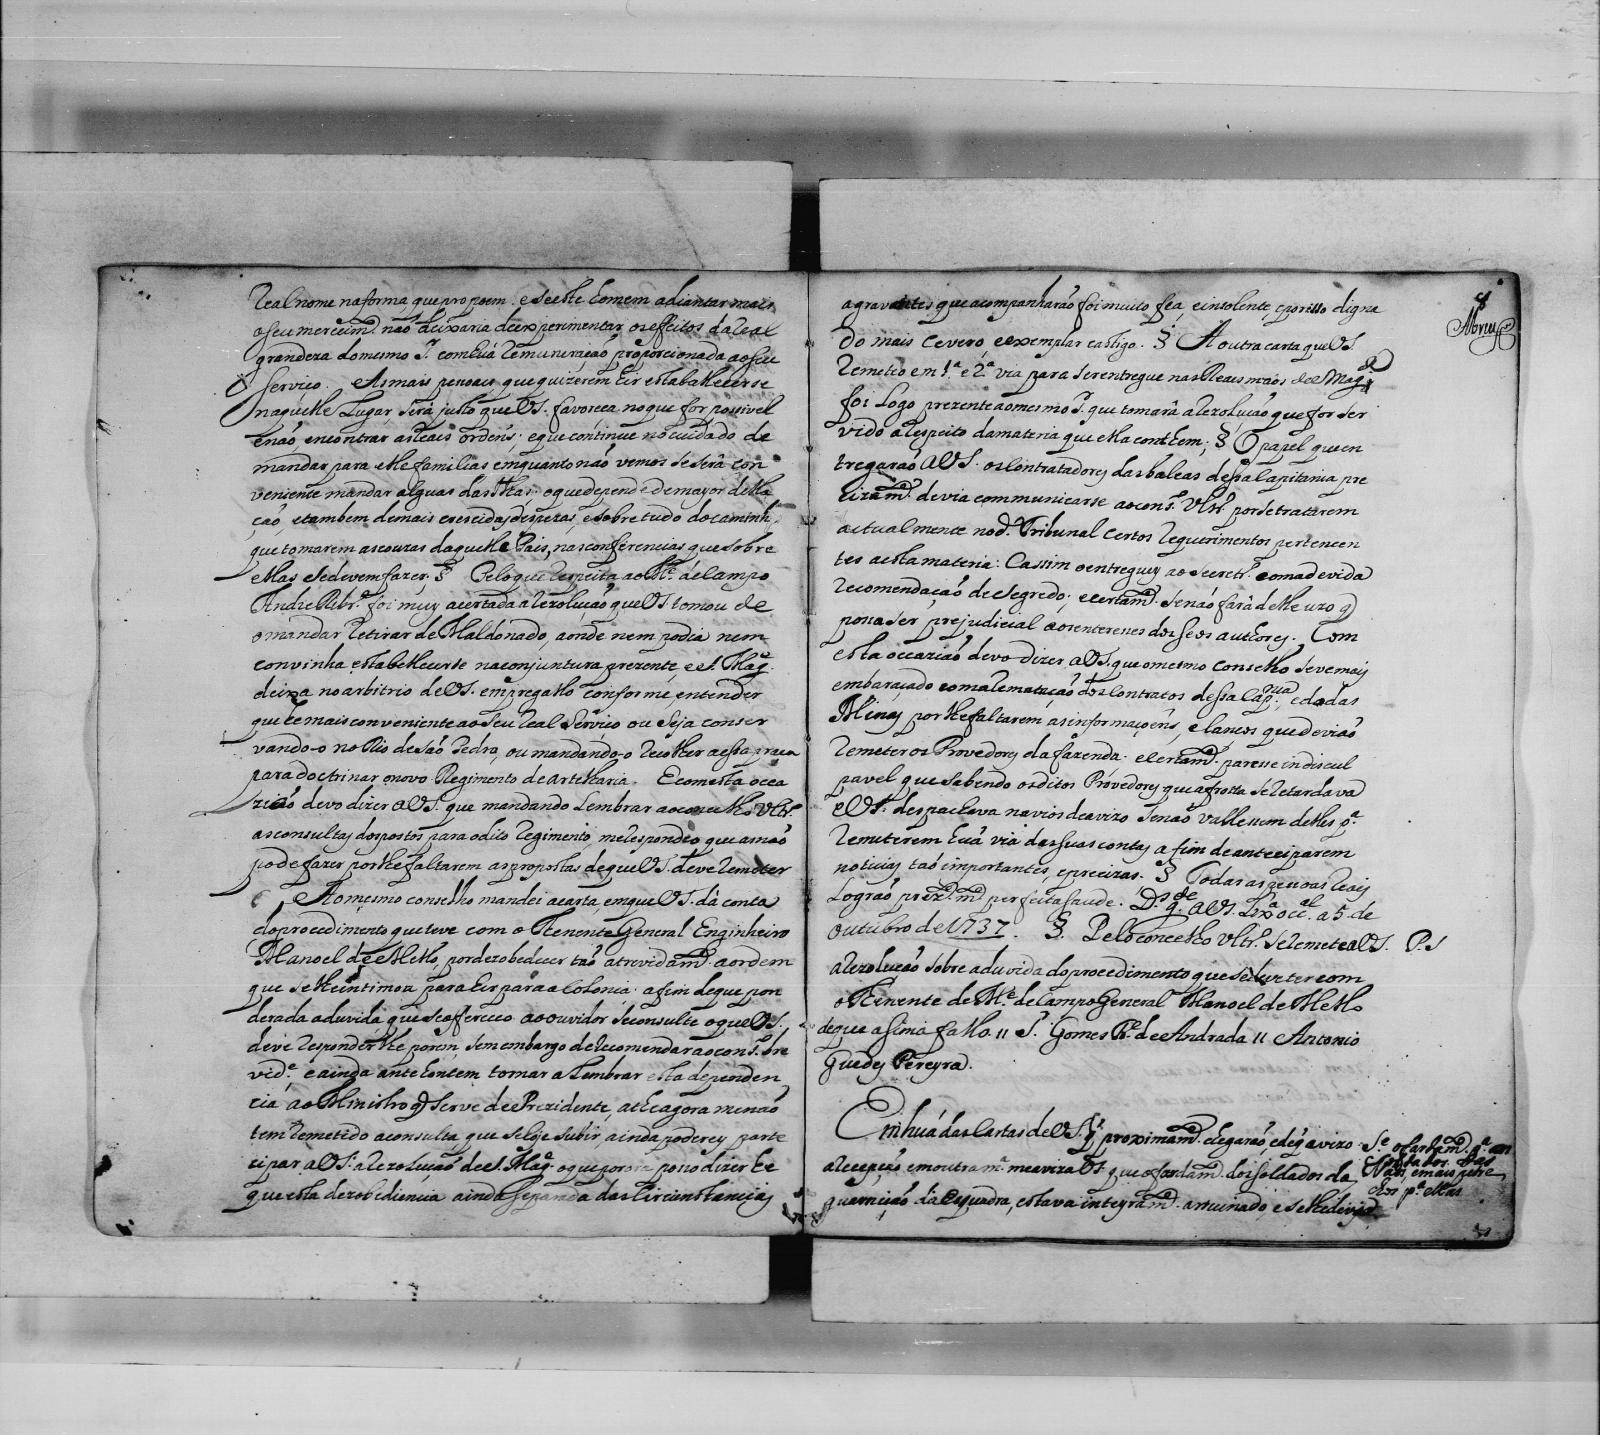 real nome na forma que propoem. e se este homem adiantar mais
o seu merecim.to não deixaria de experimentar os effeitos da real
grandeza do mesmo S.r com huã remuneração proporcionada ao seu
serviço. As mais pessoas que quizerem hir estabalhecerse
naquelle Lugar, será justo que VS. favoreça no que for possivel
e não encontrar as reais ordens; e que continue no cuidado de
mandar para elle familias emquanto não vemos se será con
veniente mandar alguas das Ilhas. o que depende de mayor dilla
ção, e tambem de mais crescidas despezas, e sobre tudo do caminh.o
que tomarem as couzas daquelle Pais, nas conferencias que sobre
ellas se devem fazer. § Pelo que respeita ao M.e de Campo
Andre Ribr.o foi muy acertada a rezolução que VS. tomou de
o mandar retirar de Maldonado, aonde nem podia nem
convinha estabelhecerse na conjuntura prezente, e S. Mag.e
deixa no arbitrio de VS. empregallo conforme entender
que he mais conveniente ao seu real serviço ou seja conser
vando-o no Rio de São Pedro, ou mandando-o recolher a essa praça
para doctrinar o novo Regimento de Artelharia. E com esta occa
zião devo dizer a VS. que mandando lembrar ao concelho Vltr.o
as consultas dos postos para o dito regimento, me respondeo que as não
pode fazer por lhe faltarem as propostas de que VS. deve remeter
Ao mesmo conselho mandei a carta, em que VS. dá conta
do procedimento que teve com o Tenente General Enginheiro
Manoel de Mello, por dezobedecer tão atrevidam.te a ordem
que se lhe intimou para hir para a Colonia. a fim de que pon
derada a duvida que se offereceo ao ouvidor se consulte o que VS.
deve responderlhe porem, sem embargo de recomendar ao cons.o bre
vid.e e ainda antehontem tornar a lembrar esta dependen
cia ao Ministro q serve de Prezidente, athe agora me não
tem remetido a consulta, que se hoje subir, ainda poderey parte
cipar a VS. a rezolução de S. Mag.e o que por ora posso dizer he
que esta dezobediencia ainda separada das circunstancias
8
Abreu
agravantes que acompanharão foi muito fea, e insolente, e por isso digna
do mais cevero e exemplar castigo. § A outra carta que VS.
remeteo em 1.a e 2.a via para ser entregue nas Reais mãos de S Mag.e
foi logo prezente ao mesmo S.r que tomará a rezolução que for ser
vido a respeito da materia que ella contem; § O papel que en
tregarão a VS. os contratadores das baleas dessa Capitania pre
cizam.te devia communicarse ao cons.o Vltr.o por se tratarem
actualmente no d.o Tribunal certos requerimentos pertencen
tes a esta materia: E assim o entreguey ao secretr.o com a devida
recomendação de segredo; e certam.te se não fará delle uzo q
possa ser prejudicial aos enteresses dos seos authores. Com
esta occazião devo dizer a VS. que o mesmo conselho se ve mais
embaraçado com a rematação dos contratos dessa Cap.nia e da das
Minas por lhe faltarem as informações, e lanços que devião
remeter os Provedores da fazenda. e certam.te parece indiscul
pavel que sabendo os ditos Provedores que a frota se retardava
e VS. despachava navios de avizo se não vallessem delles p.a
remeterem huã via das suas contas a fim de anteciparem
noticias tão importantes, e precizas. § Todas as pessoas reais
Logrão prezm.te perfeita saude. D.s g.de a VS. Lix.a occ.al a 5 de
outubro de 1737. § Pelo concelho Vltr.o se remete a VS. P.S
a rezolução sobre a duvida do procedimento que se deve ter com
o Tenente de M.e de Campo General Manoel de Mello
de que asima fallo. II S.r Gomes Fr.e de Andrada II Antonio
Guedes Pereyra.
Em huã das Cartas de VS. q proximam.te chegarão, e de q avizo
a recepção, em outra m.a me aviza VS. que o fardam.to dos soldados da
guarnição da Esquadra, estava integram.te arruinado, e se lhe devião
S.e o fardam.to p.a
soldados das
Naos, e mais
p.a ellas